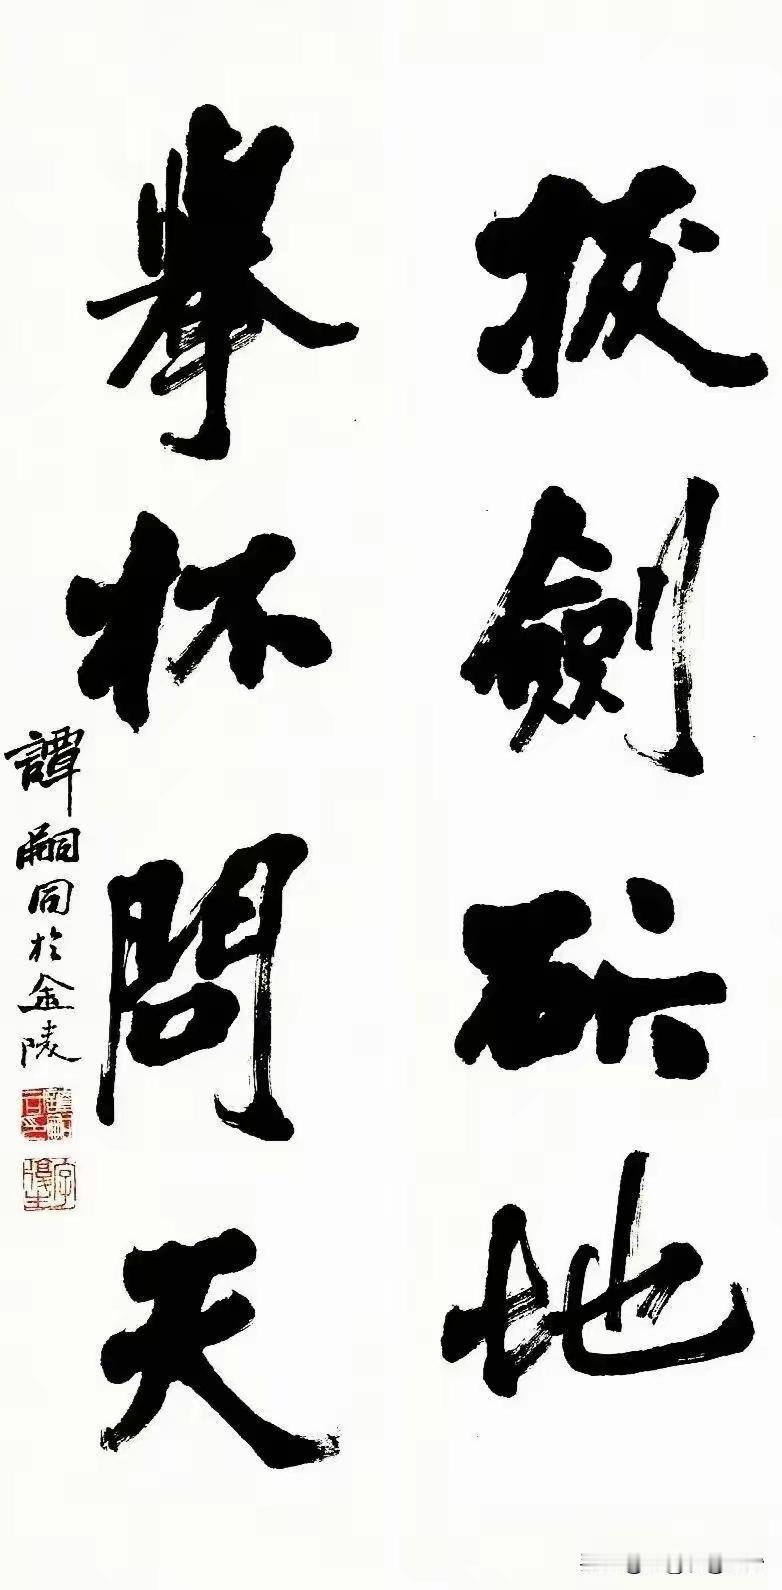 拔劍斫地
舉杯問天
譚嗣同於金陵